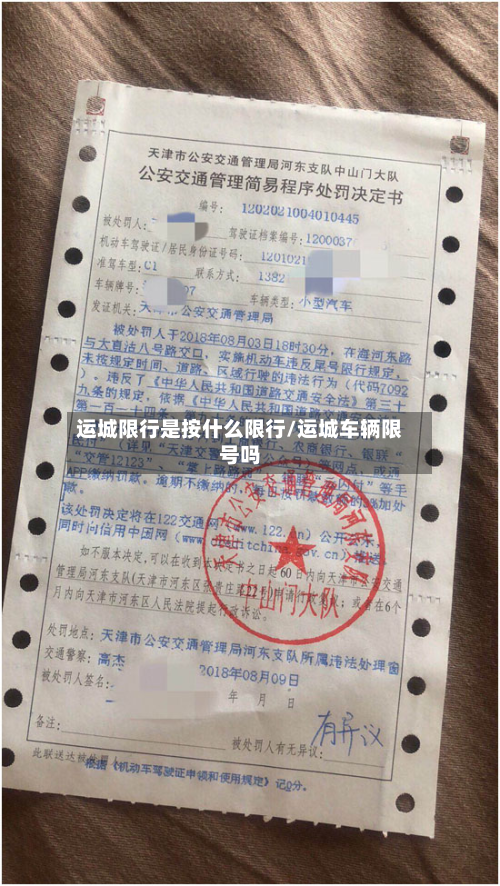 天津市公安交通管理局河东支队中山门大队
公安交通管理简易程序处罚决定书
编号: 1202021004010445
被处罚人:
驾驶证档案编号: 1200037
机动车驾驶证/居民身份证号码: 1201021
准驾车型: C1
联系方式: 1382
车辆牌号:
07
车辆类型: 小型汽车
发证机关: 天津市公安交通管理局
被处罚人于2018年08月03日18时30分, 在海河东路
与大直沽八号路交口, 实施机动车违反尾号限行规定,
未按规定时间、道路、区域行驶的违法行为 (代码7092
), 违反了《中华人民共和国道路交通安全法》第三十
九条的规定, 依据《中华人民共和国道路交通安全法》
第一百一十四条、第九十
运城限行是按什么限行/运城车辆限
号吗
农商银行、银联"
"交管12123"、"掌上路路通"
等手
APP缴纳罚款。逾期不缴纳的, 每日按罚款数额的3%加处
款。
该处罚决定将在122交通网 (www.122.cn) 公开公示,
同时向信用中国网
如不服本决定, 可以在收到本决定书之日起60日内向天津市公安交通
管理局河东支队(天津市河东区张贵庄路22号)申请行政复议; 或者在6个
月内向天津市河东区人民法院提起行政诉讼。
天津市公安交通管理局河东支队
中山门大队
处罚地点: 天津市公安交通管理局河东支队所属违法处理窗
交通警察: 高杰
2018年08月09日
被处罚人签名:
年 月 日
有异议
备注:
被处罚人有无异议:
此联送达被处罚人
根据《机动车驾驶证申领和使用规定》记0分。